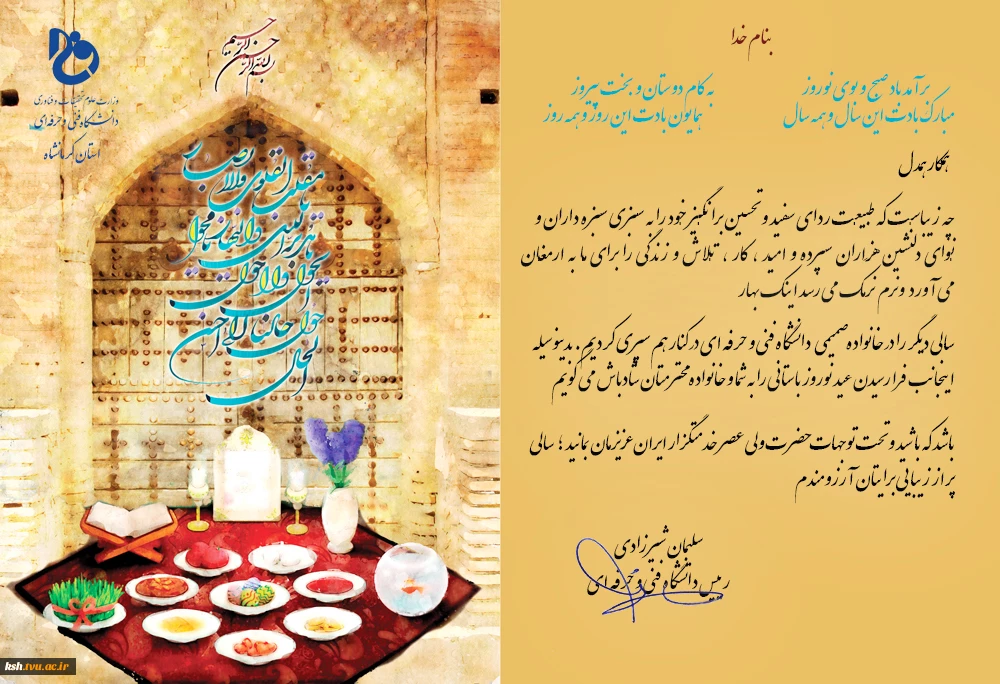 بنام خدا
برآمد باد صبح و بوی نوروز
به کام دوستان و بخت پیروز
مبارک بادت این سال و همه سال
همایون بادت این روز و همه روز
همکار همدل
چه زیباست که طبیعت ردای سفید و تحسین برانگیز خود را به سبزی سبزه داران و
نوای دلنشین هزاران سپرده و امید ، کار ، تلاش و زندگی را برای ما به ارمغان
می آورد و نرم نرمک می رسد اینک بهار
سالی دیگر را در خانواده صمیمی دانشگاه فنی و حرفه ای در کنار هم سپری کردیم. بدینوسیله
اینجانب فرارسیدن عید نوروز باستانی را به شما و خانواده محترمتان شادباش می گویم
باشد که باشید و تحت توجهات حضرت ولی عصر خدمتگزار ایران عزیزمان بمانید ؛ سالی
پر از زیبایی برایتان آرزومندم
سلیمان شیرزادی
رییس دانشگاه فنی و حرفه ای
بسم الله الرحمن الرحیم
وزارت علوم تحقیقات و فناوری
دانشگاه فنی و حرفه ای
استان کرمانشاه
یا مقلب القلوب والابصار
یا مدبر اللیل و النهار
یا محول الحول و الاحوال
حول حالنا الی احسن الحال
ksh.tvu.ac.ir